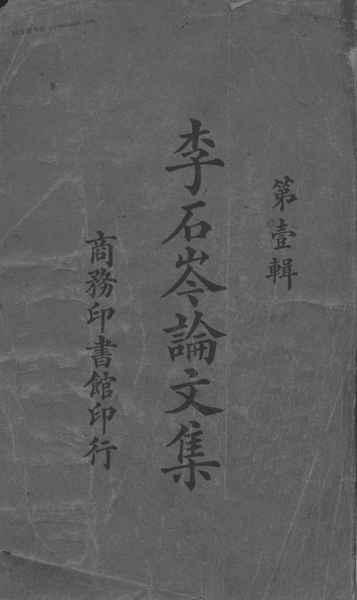 第壹輯
李石岑論文集
商務印書館印行